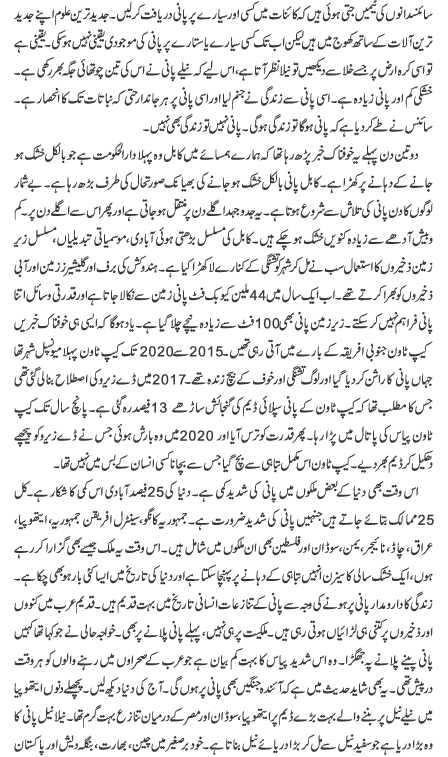 سائنسدانوں کی ٹیمیں جتی ہوئی ہیں کہ کائنات میں کسی اور سیارے پر پانی دریافت کر لیں۔ جدید ترین علوم اپنے جدید
ترین آلات کے ساتھ کھوج میں ہیں لیکن اب تک کسی سیارے یا ستارے پر پانی کی موجودی یقینی نہیں ہوسکی۔ یقینی ہے
تو اسی کرہ ارض پر جسے خلا سے دیکھیں تو نیلا نظر آتا ہے، اس لیے کہ نیلے پانی نے اس کی تین چوتھائی جگہ بھر رکھی ہے۔
خشکی کم اور پانی زیادہ ہے۔ اسی پانی سے زندگی نے جنم لیا اور اسی پانی پر ہر جاندار حتی کہ نباتات تک کا انحصار ہے۔
سائنس نے طے کر دیا ہے کہ پانی ہوگا تو زندگی ہوگی۔ پانی نہیں تو زندگی بھی نہیں۔
دو تین دن پہلے یہ خوفناک خبر پڑھ رہا تھا کہ ہمارے ہمسائے میں کابل وہ پہلا دارالحکومت ہے جو بالکل خشک ہو
جانے کے دہانے پر کھڑا ہے۔ کابل پانی بالکل خشک ہو جانے کی بھیانک صورتحال کی طرف بڑھ رہا ہے۔ بے شمار
لوگوں کا دن پانی کی تلاش سے شروع ہوتا ہے۔ یہ جدوجہد اگلے دن پر منتقل ہو جاتی ہے اور پھر اس سے اگلے دن پر۔ کم
و بیش آدھے سے زیادہ کنویں خشک ہو چکے ہیں۔ کابل کی مسلسل بڑھتی ہوئی آبادی، موسمیاتی تبدیلیاں، مسلسل زیر
زمین ذخیروں کا استعمال سب نے مل کر شہر کو تشنگی کے کنارے لا کھڑا کیا ہے۔ ہندوکش کی برف اور گلیشیئرز زمین اور آبی
ذخیروں کو بھرا کرتے تھے۔ اب ایک سال میں 44 ملین کیوبک فٹ پانی زمین سے نکالا جاتا ہے اور قدرتی وسائل اتنا
پانی فراہم نہیں کر سکتے۔ زیر زمین پانی بھی 100 فٹ سے زیادہ نیچے چلا گیا ہے۔ یاد ہوگا کہ ایسی ہی خوفناک خبریں
کیپ ٹاؤن جنوبی افریقہ کے بارے میں آتی رہی تھیں۔ 2015 سے 2020 تک کیپ ٹاؤن پہلا میونسپل شہر تھا
جہاں پانی کا راشن کر دیا گیا اور لوگ تشنگی اور خوف کے بیچ زندہ تھے۔ 2017 میں ڈے زیرو کی اصطلاح بنا لی گئی تھی
جس کا مطلب تھا کہ کیپ ٹاؤن کے پانی سپلائی ڈیم کی گنجائش ساڑھے 13 فیصد رہ گئی ہے۔ پانچ سال تک کیپ
ٹاؤن پیاس کی پاتال میں پڑا رہا۔ پھر قدرت کو ترس آیا اور 2020 میں وہ بارش ہوئی جس نے ڈے زیرو کو پیچھے
دھکیل کر ڈیم بھر دیے۔ کیپ ٹاؤن اس مکمل تباہی سے بچ گیا جس سے بچانا کسی انسان کے بس میں نہیں تھا۔
اس وقت بھی دنیا کے بعض ملکوں میں پانی کی شدید کمی ہے۔ دنیا کی 25 فیصد آبادی اس کمی کا شکار ہے۔ کل
25 ممالک بتائے جاتے ہیں جنہیں پانی کی شدید ضرورت ہے۔ جمہوریہ کانگو، سینٹرل افریقن جمہوریہ، ایتھوپیا،
عراق، چاڈ، نائیجر، یمن، سوڈان اور فلسطین بھی ان ملکوں میں شامل ہیں۔ اس وقت یہ ملک جیسے بھی گزارا کر رہے
ہوں، ایک خشک سالی کا سیزن انہیں تباہی کے دہانے پر پہنچا سکتا ہے اور دنیا کی تاریخ میں ایسا کئی بار ہو بھی چکا ہے۔
زندگی کا دارومدار پانی پر ہونے کی وجہ سے پانی کے تنازعات انسانی تاریخ میں بہت قدیم ہیں۔ قدیم عرب میں کنوؤں
اور ذخیروں پر کتنی ہی لڑائیاں ہوتی رہی ہیں۔ ملکیت پر ہی نہیں، پہلے پانی پلانے پر بھی۔ خواجہ حالی نے جو کہا تھا کہیں
پانی پینے پلانے پہ جھگڑا۔ وہ اس شدید پیاس کا بہت کم بیان ہے جو عرب کے صحراؤں میں رہنے والوں کو ہر وقت
درپیش تھی۔ یہ بھی شاید حدیث میں ہے کہ آئندہ جنگیں بھی پانی پر ہوں گی۔ آج کی دنیا دیکھ لیں۔ پچھلے دنوں ایتھوپیا
میں نیلے نیل پر بننے والے بہت بڑے ڈیم پر ایتھوپیا، سوڈان اور مصر کے درمیان تنازع بہت گرم تھا۔ نیلا نیل پانی کا
وہ بڑا دریا ہے جو سفید نیل سے مل کر بڑا دریائے نیل بناتا ہے۔ خود برصغیر میں چین، بھارت، بنگلہ دیش اور پاکستان